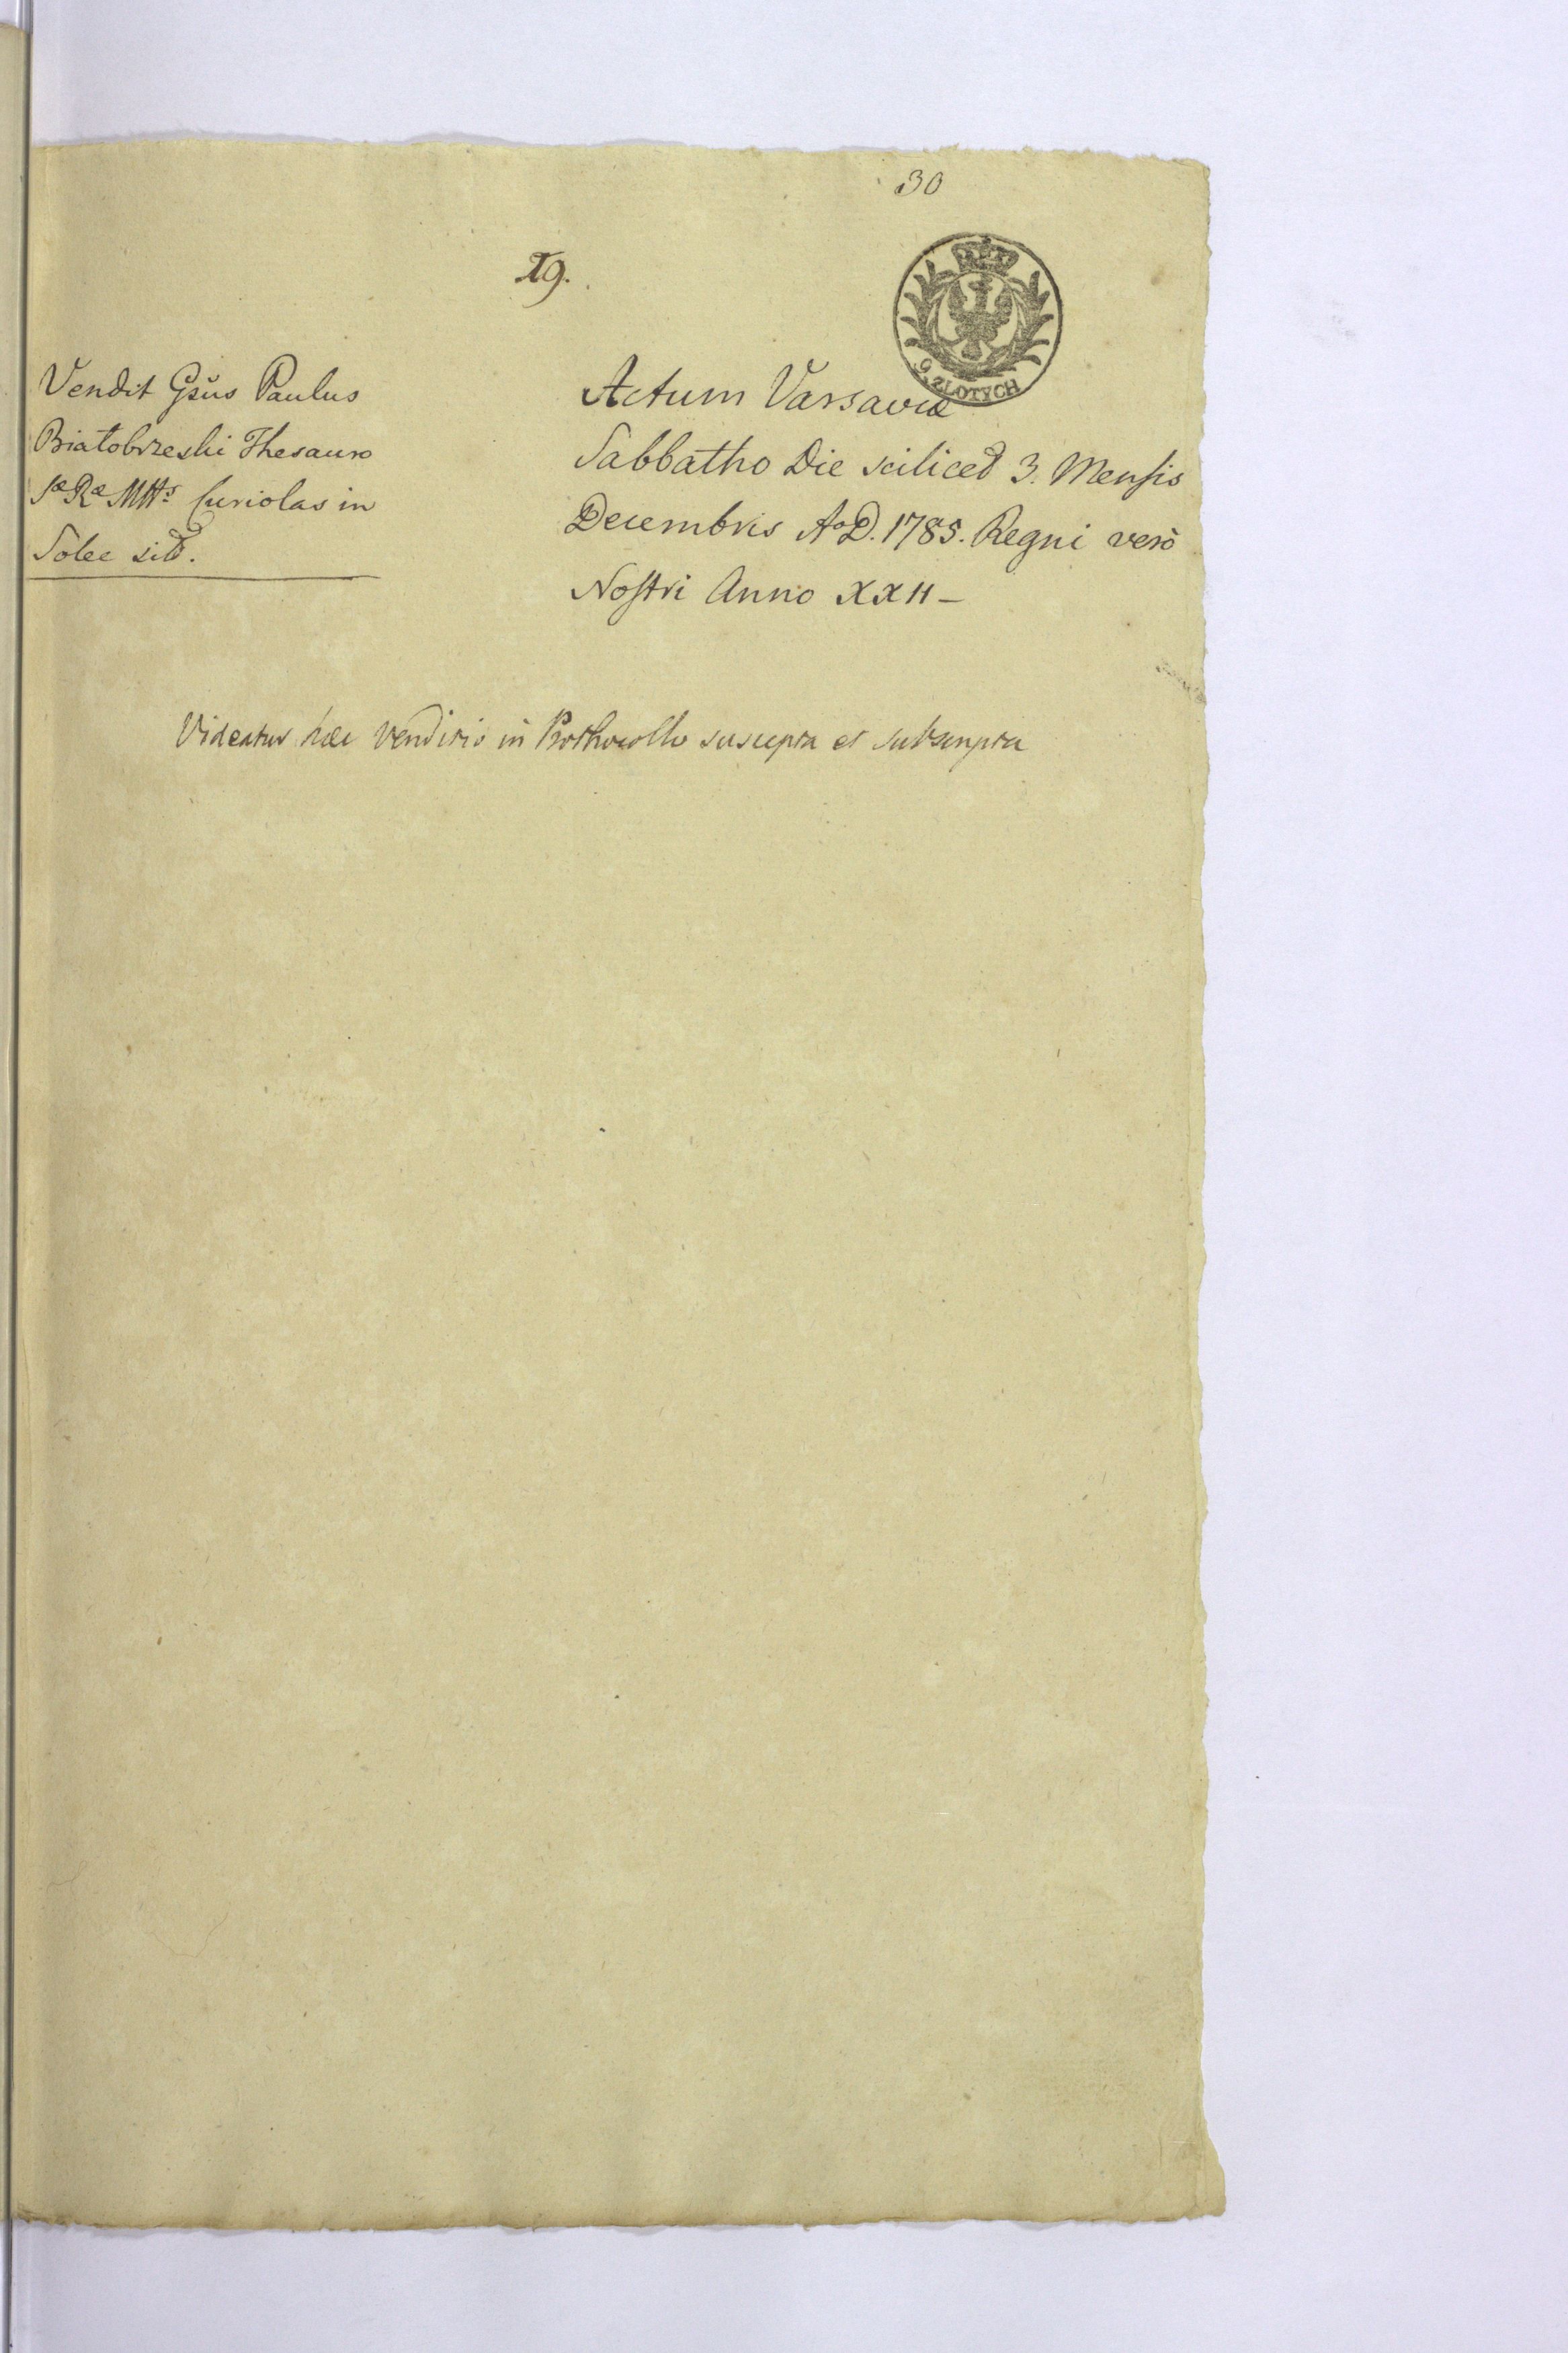 30
19.
G. ZLOTYCH
Vendit Gsus Paulus
Białobrzeski Thesauro
Sæ Ræ Mttis Curiolas in
Solec sit.
Actum Varsaviæ
Sabbatho Die scilicet 3. Mensis
Decembris Ao D. 1785. Regni verò
Nostri Anno XXII –
Videatur hæc venditio in Prothocollo suscepta et subscripta